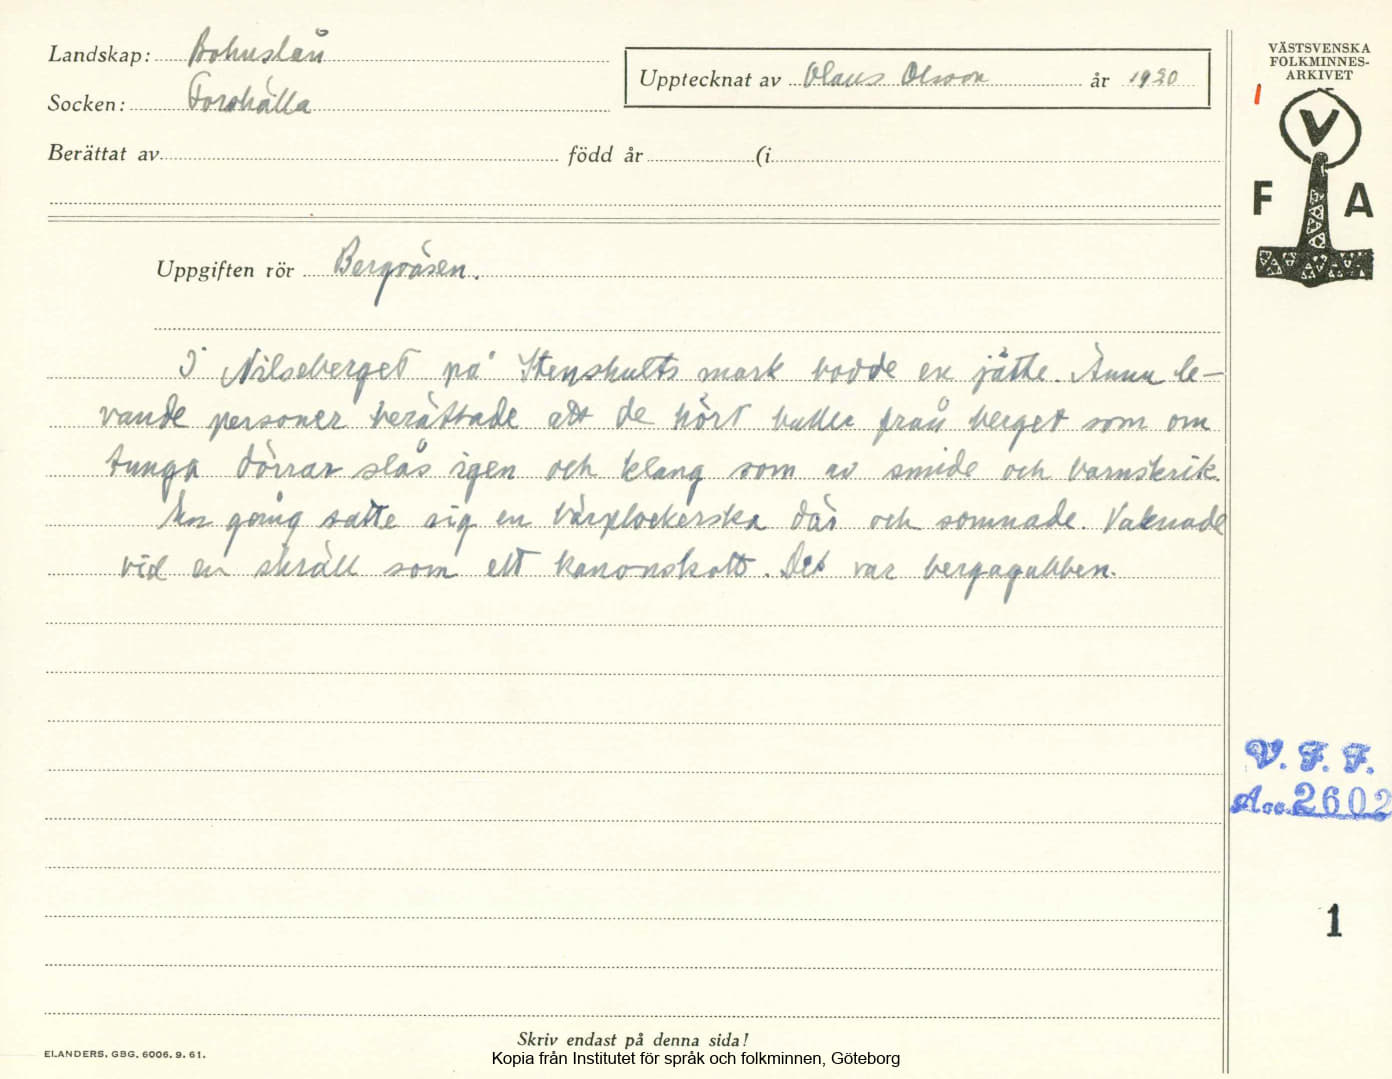 Landskap: Bohuslän
Socken: Forshälla
Upptecknat av Olaus Olsson år 1930
Berättat av född år (i
VÄSTSVENSKA
FOLKMINNES-
ARKIVET
V
F A
Uppgiften rör Bergväsen.
I Nilseberget på Stenshults mark bodde en jätte. Ännu le-
vande personer berättade att de hört buller från berget som om
tunga dörrar slås igen och klang som av smide och barnskrik.
En gång satte sig en bärplockerska där och somnade. Vaknade
vid en skräll som ett kanonskott. Det var bergagubben.
V. F. F.
Acc. 2602
1
Skriv endast på denna sida!
ELANDERS. GBG. 6006. 9. 61.
Kopia från Institutet för språk och folkminnen, Göteborg